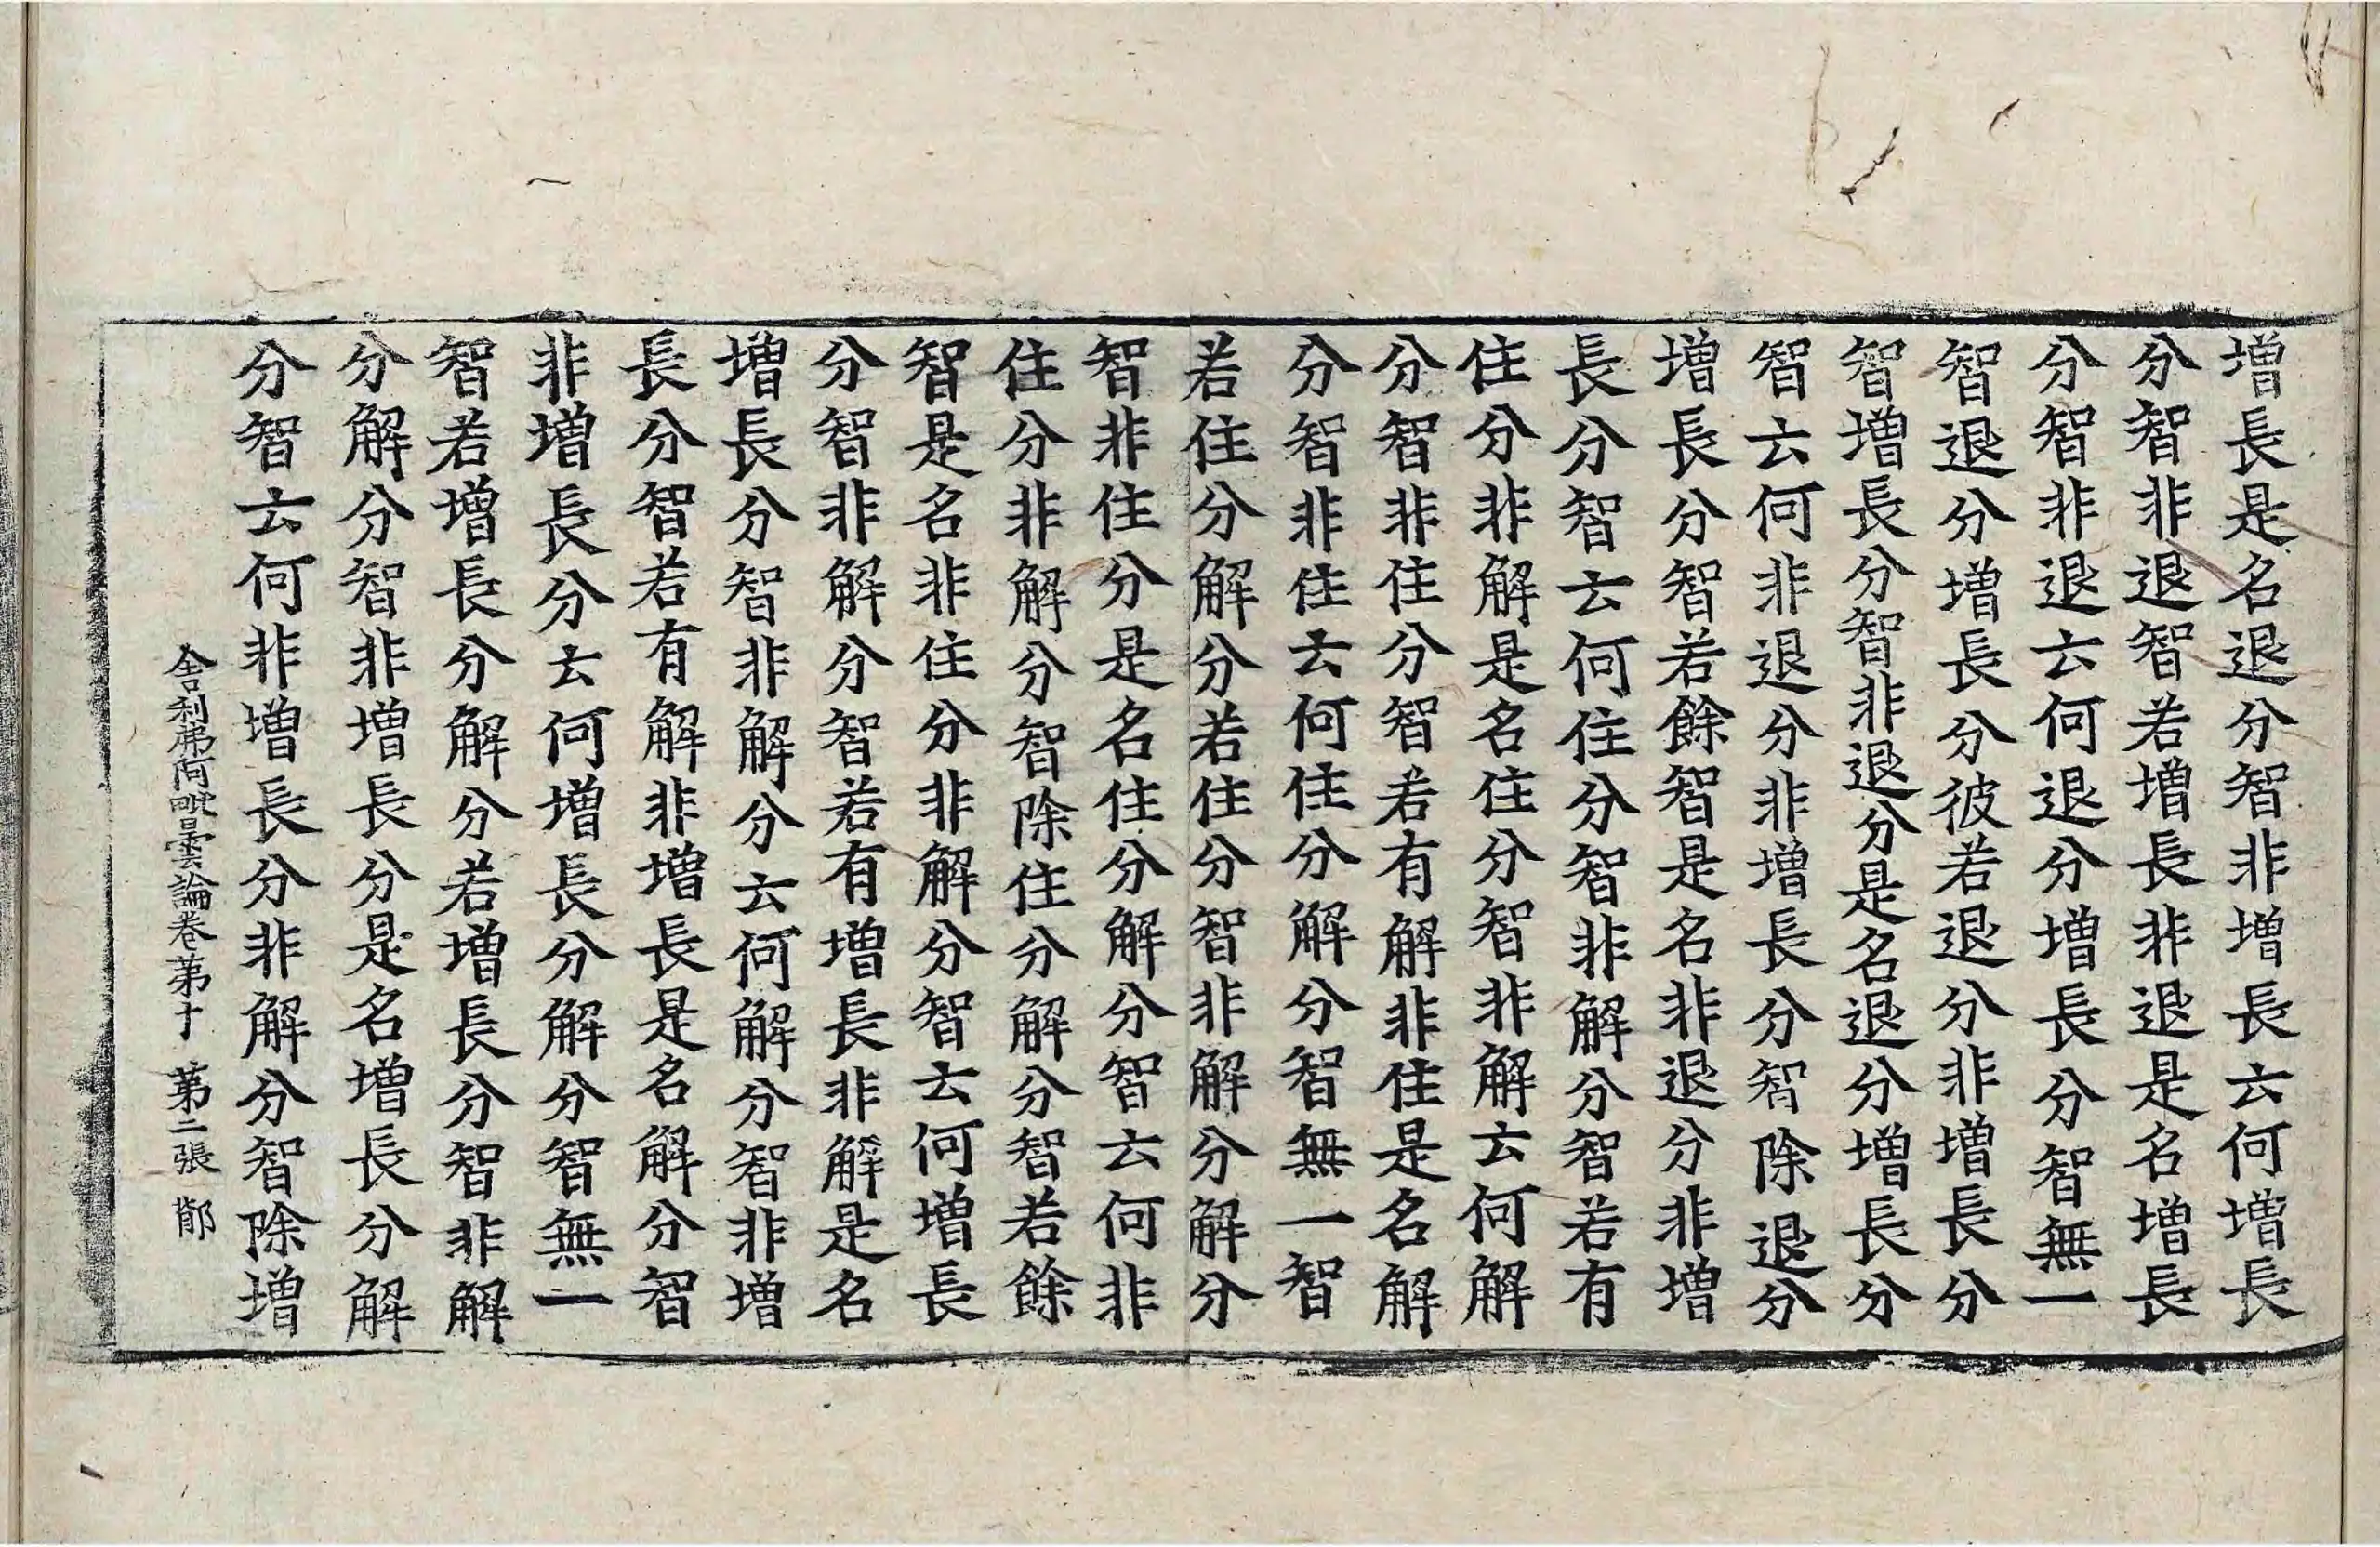 增長是名退分智非增長云何增長
分智非退智若增長非退是名增長
分智非退云何退分增長分智無一
智退分增長分彼若退分非增長分
智增長分智非退分是名退分增長分
智云何非退分非增長分智除退分
增長分智若餘智是名非退分非增
長分智云何住分智非解分智若有
住分非解是名住分智非解云何解
分智非住分智若有解非住是名解
分智非住云何住分解分智無一智
若住分解分若住分智非解分解分
智非住分是名住分解分智云何非
住分非解分智除住分解分智若餘
智是名非住分非解分智云何增長
分智非解分智若有增長非解是名
增長分智非解分云何解分智非增
長分智若有解非增長是名解分智
非增長分云何增長分解分智無一
智若增長分解分若增長分智非解
分解分智非增長分是名增長分解
分智云何非增長分非解分智除增
舍利弗阿毗曇論卷苐十 苐二張